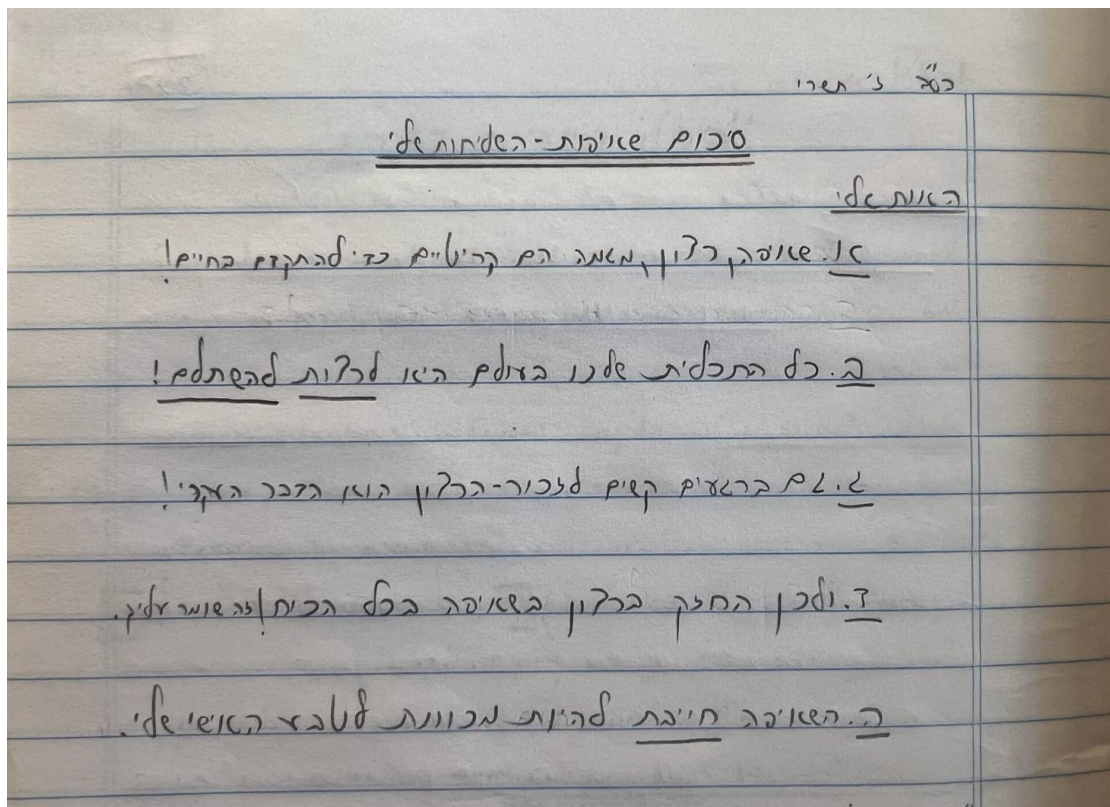 בס"ד ז' תשרי
סיכום שאיפות-השליחות שלי
האות שלי
א. שאיפה, רצון, מגמה הם קריטיים כדי להתקדם בחיים!
ב. כל התכלית שלנו בעולם היא לרצות להשתלם!
ג. גם ברגעים קשים לזכור-הרצון הוא הדבר העקרי!
ד. ולכן החזק ברצון בשאיפה בכל הכוח! זה שומר עליך.
ה. השאיפה חייבת להיות מכוונת לטבע האישי שלי.